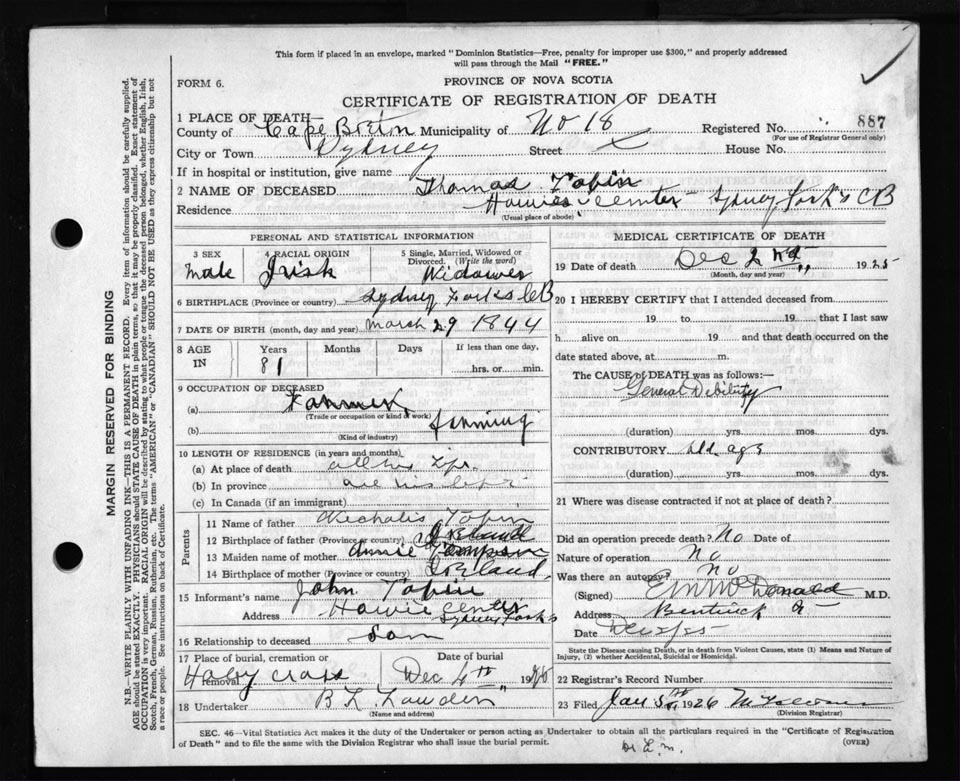 This form if placed in an envelope, marked "Dominion Statistics—Free, penalty for improper use $300," and properly addressed
will pass through the Mail "FREE."
FORM 6.
PROVINCE OF NOVA SCOTIA
CERTIFICATE OF REGISTRATION OF DEATH
1 PLACE OF DEATH—
County of Cape Breton Municipality of No 18 Registered No. 887
(For use of Registrar General only)
City or Town Sydney Street House No.
If in hospital or institution, give name
2 NAME OF DECEASED Thomas Tobin
Residence Howies Center Sydney Fork's CB
(Usual place of abode)
PERSONAL AND STATISTICAL INFORMATION
3 SEX 4 RACIAL ORIGIN 5 Single, Married, Widowed or
Divorced. (Write the word)
Male Irish Widower
6 BIRTHPLACE (Province or country) Sydney Forks CB
7 DATE OF BIRTH (month, day and year) March 29 1844
8 AGE IN Years Months Days If less than one day,
81 hrs. or min.
9 OCCUPATION OF DECEASED
(a) Farmer
(Trade or occupation or kind of work)
(b) farming
(Kind of industry)
10 LENGTH OF RESIDENCE (in years and months)
(a) At place of death all his life
(b) In province all his life
(c) In Canada (if an immigrant)
Parents
11 Name of father Tobin
12 Birthplace of father (Province or country) Ireland
13 Maiden name of mother Annie
14 Birthplace of mother (Province or country) Ireland
15 Informant's name John Tobin
Address Howie Center
Sydney Forks
16 Relationship to deceased Son
17 Place of burial, cremation or removal Date of burial
Holy Cross Dec 4th 19
18 Undertaker B L
(Name and address)
MEDICAL CERTIFICATE OF DEATH
19 Date of death Dec 2nd 1925
(Month, day and year)
20 I HEREBY CERTIFY that I attended deceased from
19 to 19 that I last saw
h alive on 19 and that death occurred on the
date stated above, at m.
The CAUSE of DEATH was as follows:—
General Debility
(duration) yrs. mos. dys.
CONTRIBUTORY old age
(duration) yrs. mos. dys.
21 Where was disease contracted if not at place of death?
Did an operation precede death? No Date of
Nature of operation No
Was there an autopsy? No
(Signed) McDonald M.D.
Address Bentinck
Date
State the Disease causing Death, or in death from Violent Causes, state (1) Means and Nature of
Injury, (2) whether Accidental, Suicidal or Homicidal.
22 Registrar's Record Number
23 Filed Jan 5th 1926
(Division Registrar)
SEC. 46—Vital Statistics Act makes it the duty of the Undertaker or person acting as Undertaker to obtain all the particulars required in the "Certificate of Registration
of Death" and to file the same with the Division Registrar who shall issue the burial permit.
(OVER)
MARGIN RESERVED FOR BINDING
N.B.—WRITE PLAINLY WITH UNFADING INK—THIS IS A PERMANENT RECORD. Every item of information should be carefully supplied.
AGE should be stated EXACTLY. PHYSICIANS should STATE CAUSE OF DEATH in plain terms, so that it may be properly classified. Exact statement of
OCCUPATION is very important. RACIAL ORIGIN will be described by stating to what people or tongue the deceased person belonged, whether English, Irish,
Scotch, French, German, Russian, Ruthenian, etc. The terms "AMERICAN" or "CANADIAN" SHOULD NOT BE USED as they express citizenship but not
a race or people. See instructions on back of Certificate.